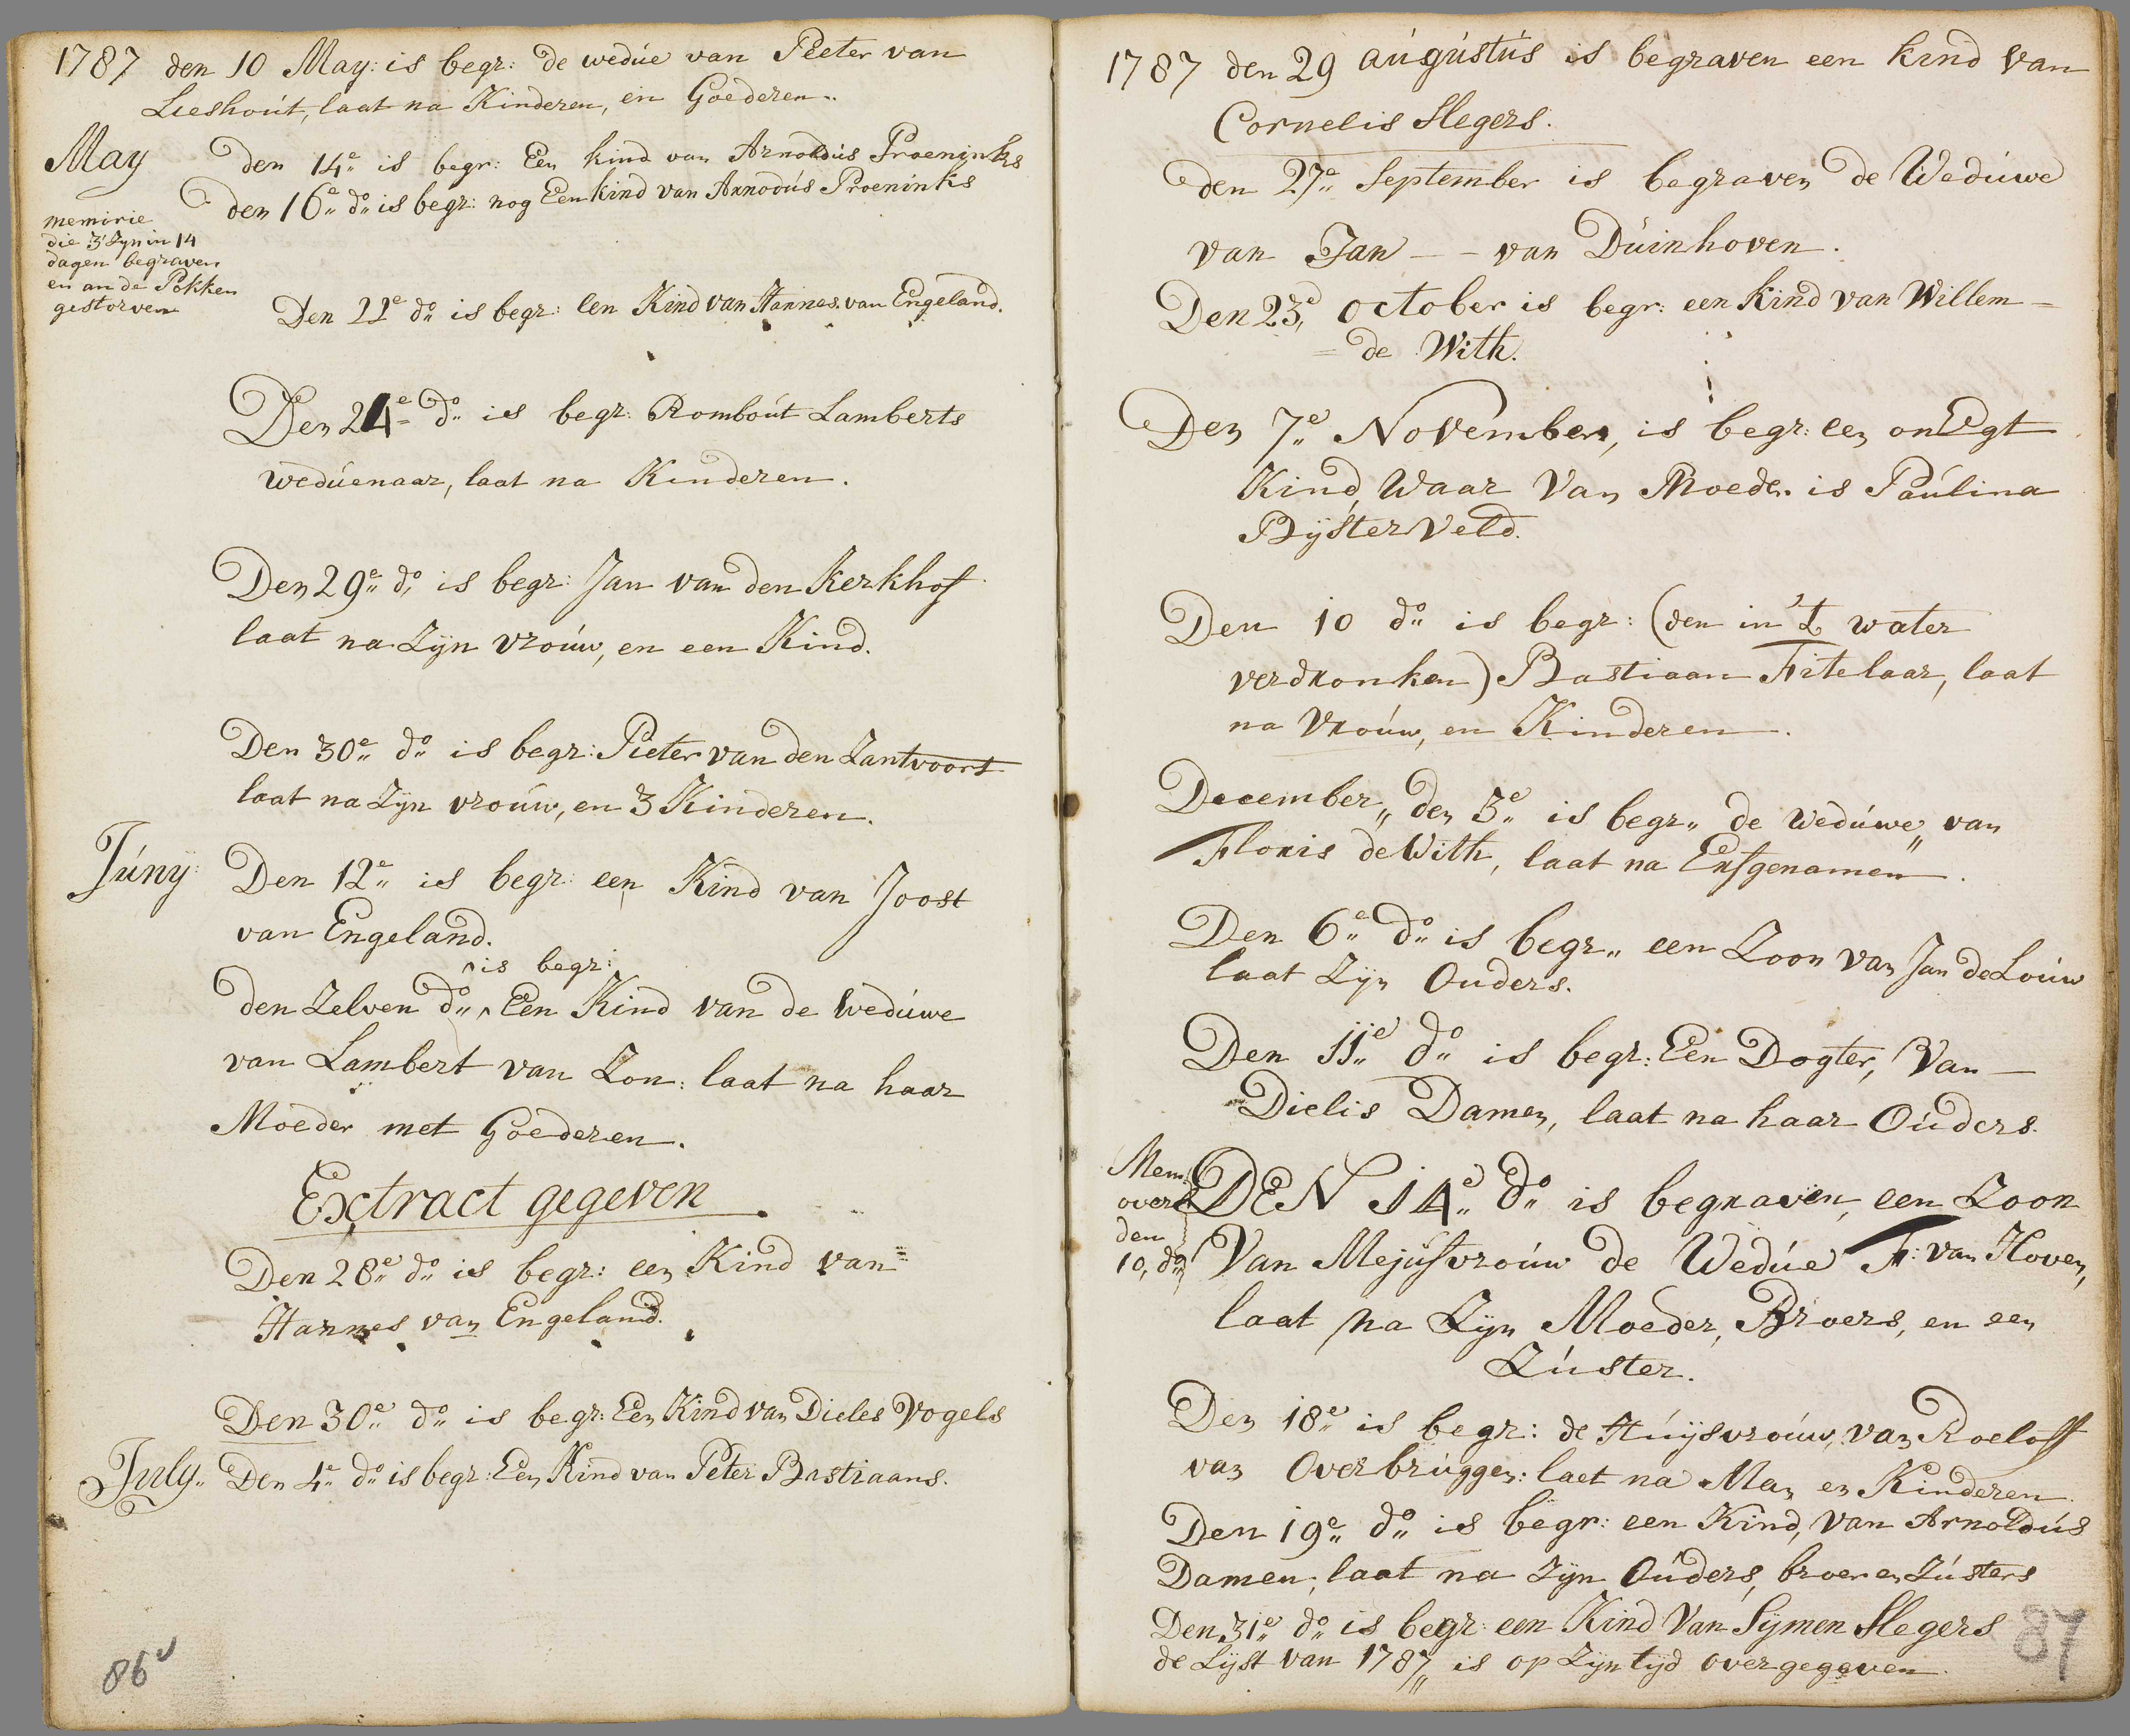 1787 den 10 May: is begr: de wedúe van Peeter van
Lieshoút, laat na Kinderen, en Goederen.
May den 14e is begr: Een kind van Arnoldús Proeninks
den 16e do is begr: nog Een kind van Arnodús Proeninks
memirie
die 3 Zyn in 14
dagen begraven
en an de Pokken
gestorven
Den 22e do is begr: een Kind van Hannes van Engeland.
Den 24e do is begr: Romboút Lamberts
wedúenaar, laat na Kinderen.
Den 29e do is begr: Jan van den Kerkhof
laat na Zÿn vroúw, en een Kind.
Den 30e do is begr: Pieter van den Zantvoort
laat na Zÿn vroúw, en 3 Kinderen.
Júnÿ: Den 12e is begr: een Kind van Joost
van Engeland.
is begr:
den Zelven do Een Kind van de wedúwe
van Lambert van Zon: laat na haar
Moeder met Goederen.
Extract gegeven
Den 28e do is begr: een Kind van
Hannes van Engeland.
Den 30e do is begr: Een Kind van Dieles Vogels
July Den 4e do is begr: Een Kind van Peter Bastiaans.
86v
1787 den 29 aúgústús is begraven een kind van
Cornelis Slegers.
den 27e September is begraven de Wedúwe
van Jan - - van Dúinhoven.
Den 23e october is begr: een Kind van Willem -
= de With.
Den 7e November, is begr: een onEgt
Kind, Waar Van Moeder is Paúlina
Bÿster Veld.
Den 10 do is begr: (den in 't water
verdronken) Bastiaan Fitelaar, laat
na Vroúw, en Kinderen.
December,, den 3e is begr,, de wedúwe,, van
Floris de With, laat na Erfgenamen.
Den 6e do is begr,, een Zoon van Jan de Loúw
laat Zÿn Ouders.
Den 11e do is begr: Een Dogter, Van -
Dielis Damen, laat na haar Oúders.
Mem:
over
den
10, do
DEN 14e do is begraven, een Zoon
Van Mejúfvroúw de Wedúe F: van Hoven,
laat na Zÿn Moeder, Broers, en een
Zúster.
Den 18e is begr: de Húÿsvroúw, van Roeloff
van Overbrúggen: laet na Man en Kinderen.
Den 19e do is begr: een Kind, van Arnoldús
Damen, laat na Zÿn Oúders, broer en Zústers
Den 31e do is begr: een Kind Van Sÿmen Slegers
de Lÿst van 1787,, is op Zÿn tÿd overgegeven.
87